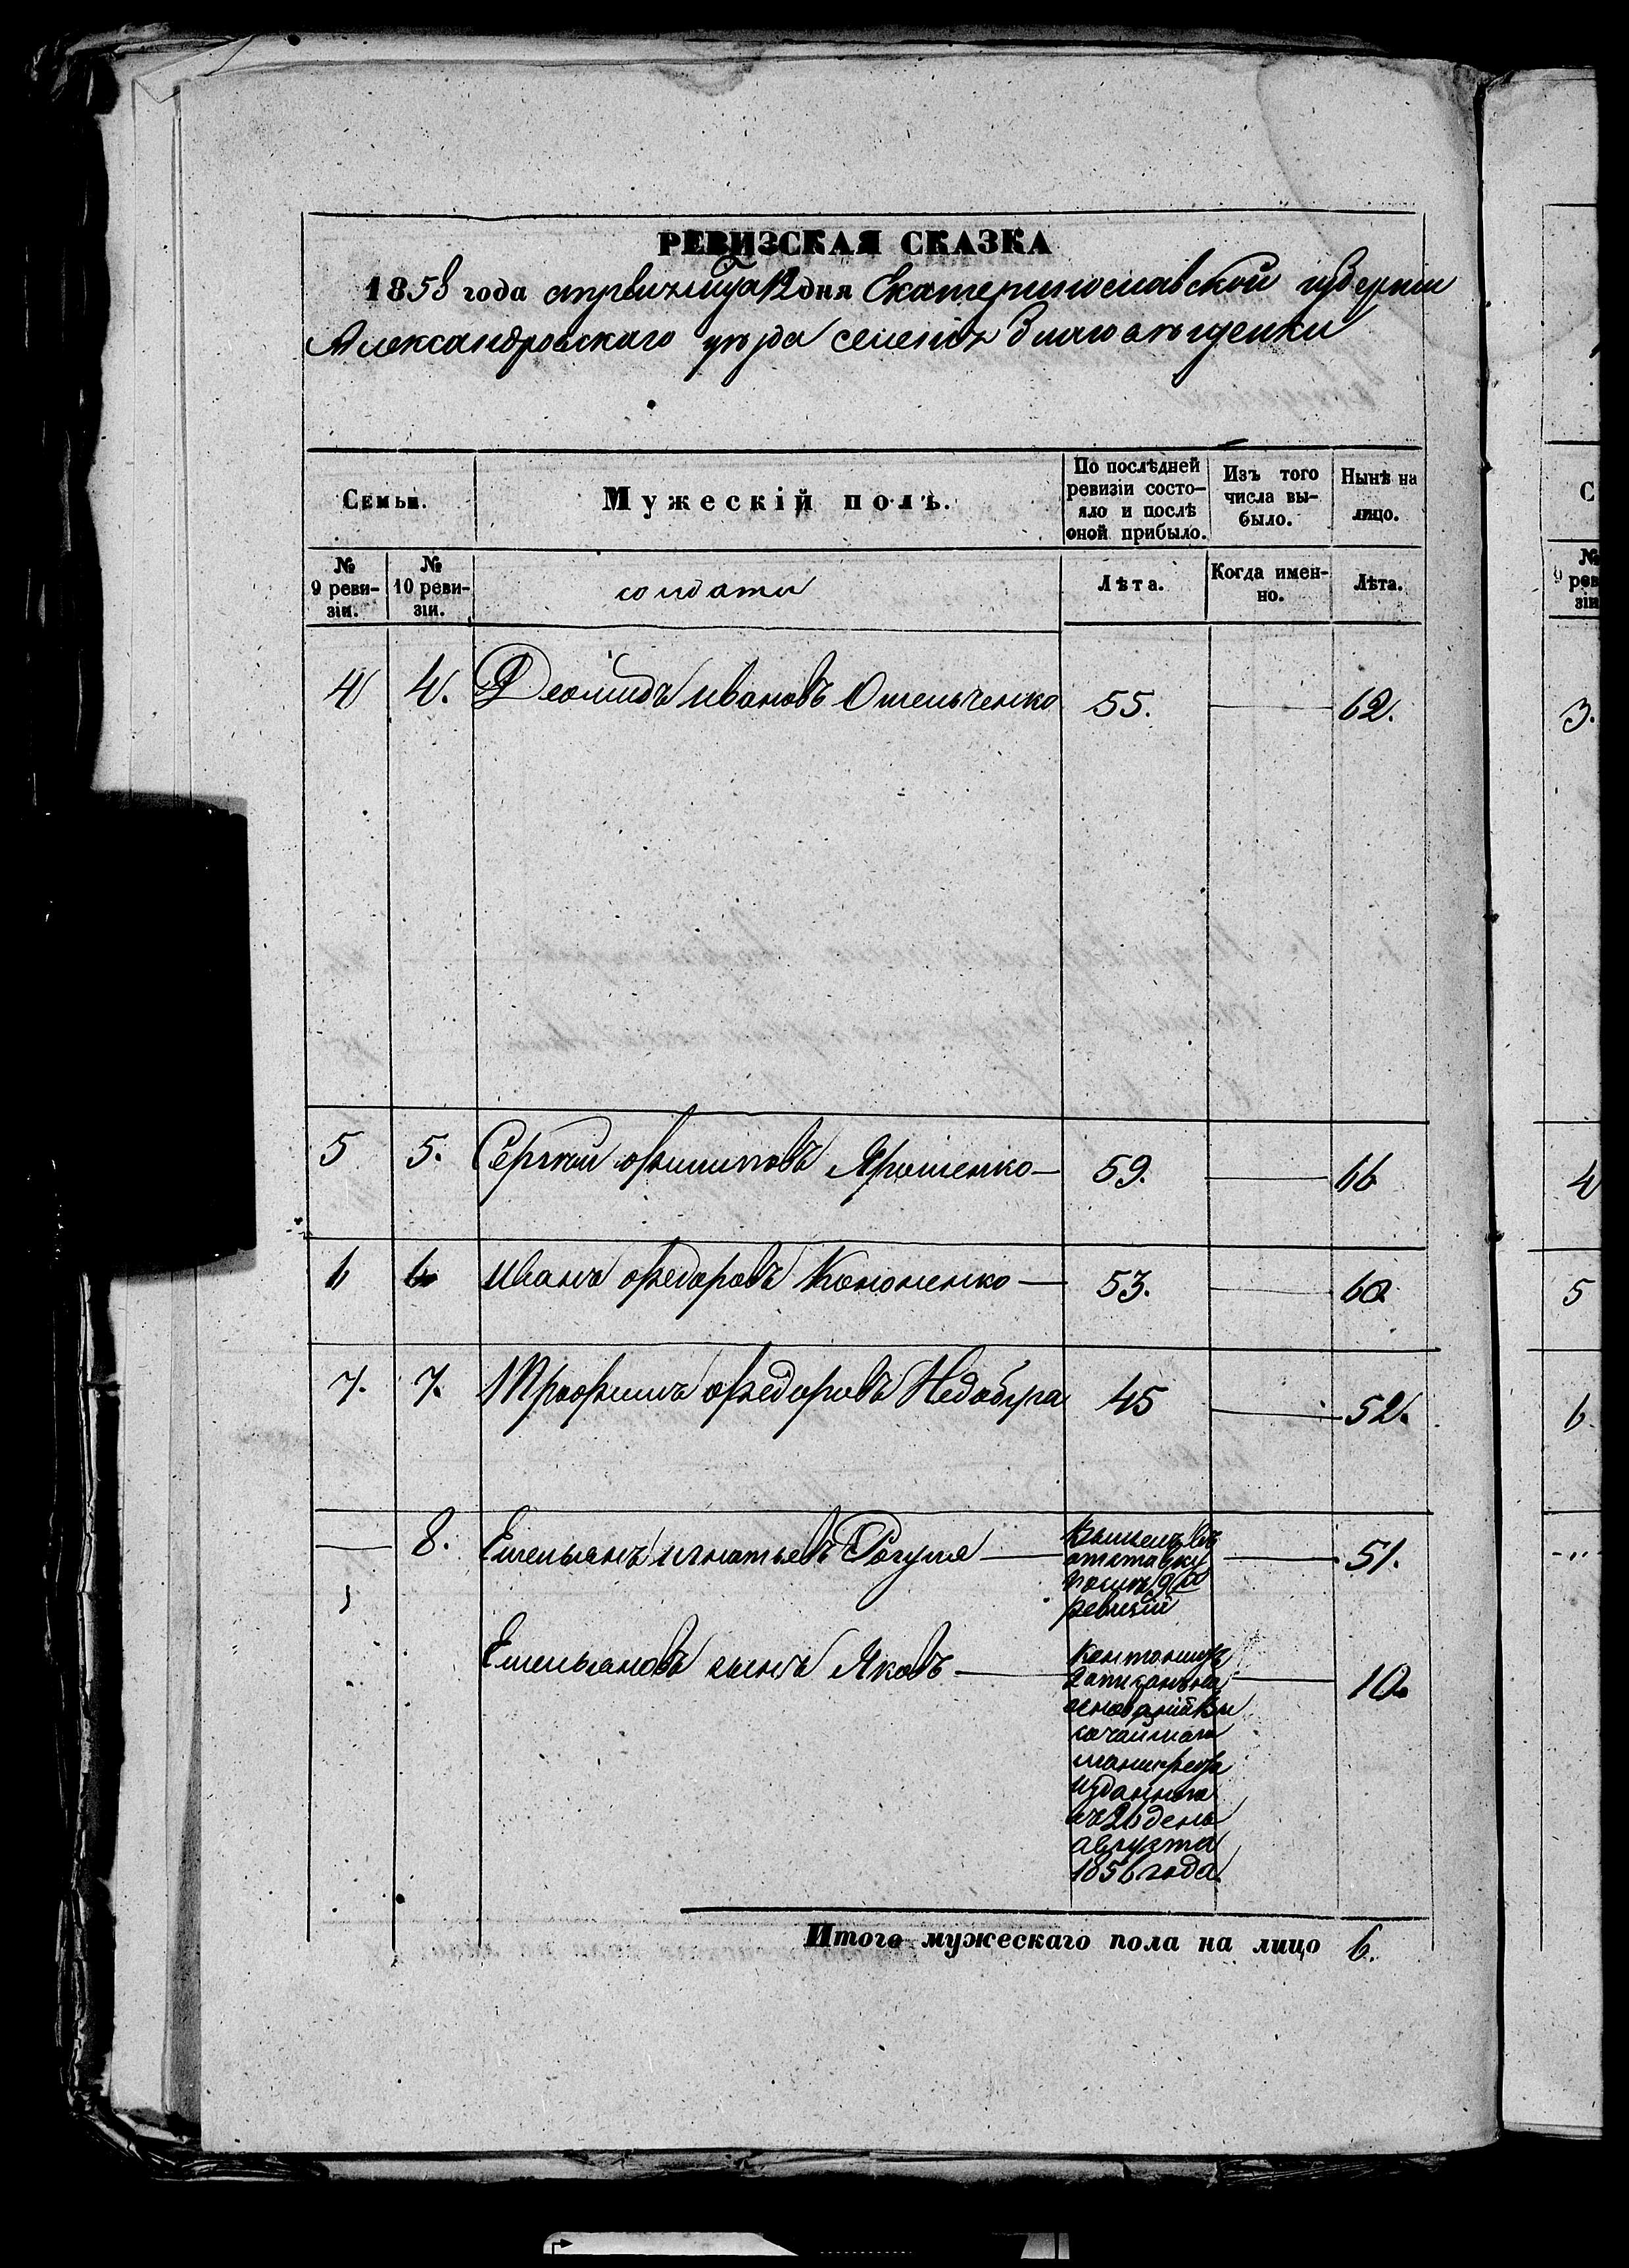 РЕВИЗСКАЯ СКАЗКА
1858 года апрѣля мѣсяца 12 дня Екатеринославской губерніи
Александровскаго уѣзда селенія Благовѣщенки
Семьи.
Мужескій полъ.
По послѣдней ревизіи состо-
яло и послѣ
оной прибыло.
Изъ того
числа вы-
было.
Нынѣ на
лицо.
№
9 реви-
зіи.
№
10 реви-
зіи.
солдаты
Лѣта.
Когда имен-
но.
Лѣта.
4 4. Деомидъ Ивановъ Омельченко 55. 62.
5 5. Сергѣй Филиповъ Ярошенко 59. 66
6 6 Иванъ Федоровъ Кононенко 53. 60
7. 7. Трофимъ Федоровъ Недобура 45 52.
8. Емельянъ Игнатьевъ Рогуля 51.
въ
отставку
послѣ 9й
ревизіи
Емельяновъ сынъ Яковъ 10.
кантонистъ
записанъ на
основаніи Вы
сочайшаго
манифеста
изданнаго
въ 26 день
августа
1856 года
Итого мужескаго пола на лицо 6.
С
№
9 рев
зіи
3.
4
5
6